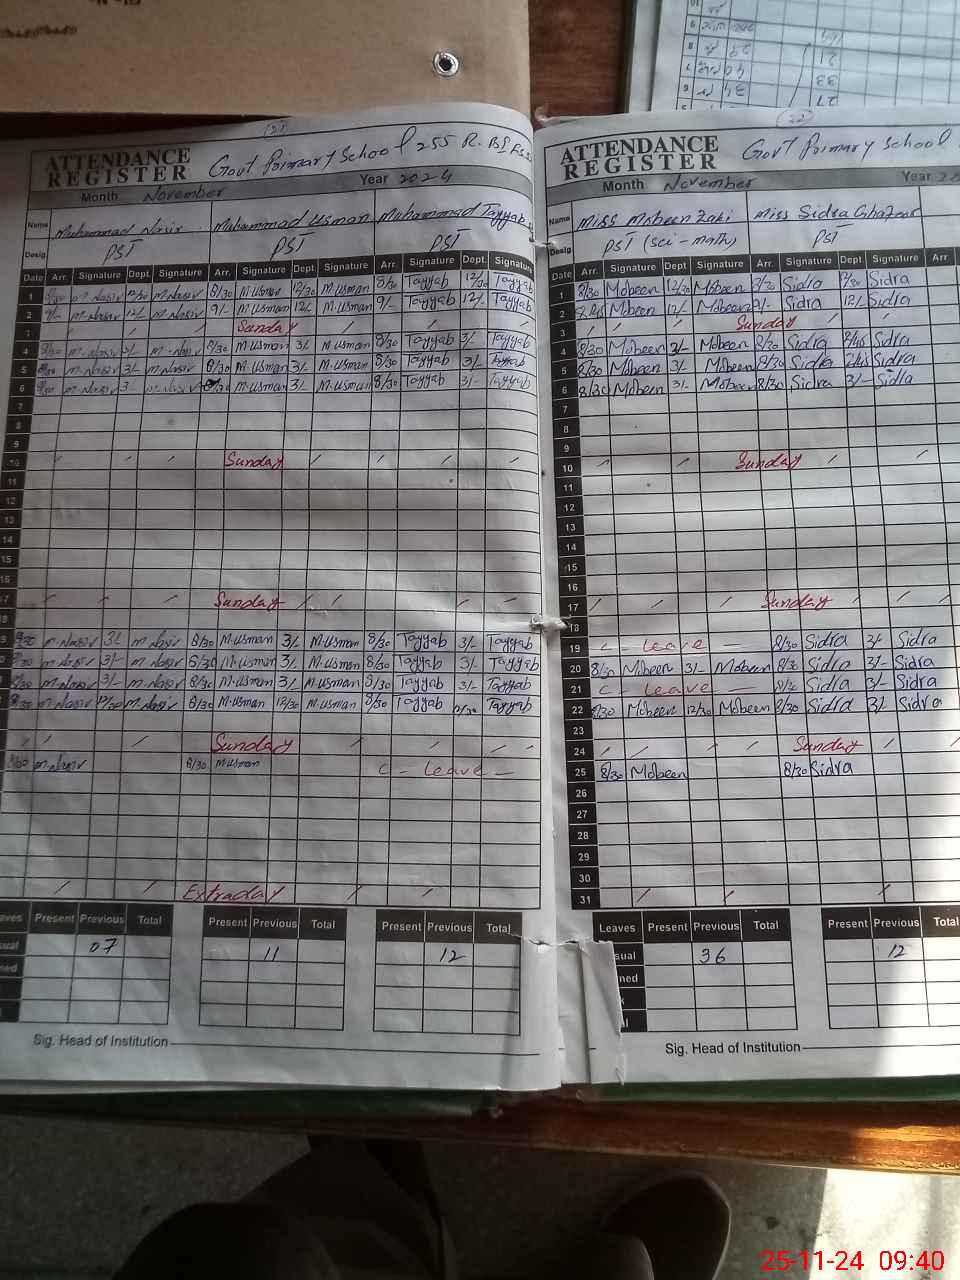 (21)
ATTENDANCE REGISTER Govt Primary School 255 R.B
Month November Year 2024
Name Muhammad Nasir Muhammad Usman Muhammad Tayyab
Desig PST PST PST
Date Arr. Signature Dept. Signature Arr. Signature Dept. Signature Arr. Signature Dept. Signature
1 8/30 M.Nasir 12/30 M.Nasir 8/30 M.Usman 12/30 M.Usman 8/30 Tayyab 12/30 Tayyab
2 9/- M.Nasir 12/- M.Nasir 9/- M.Usman 12/- M.Usman 9/- Tayyab 12/- Tayyab
Sunday
4 8/30 M.Nasir 3/- M.Nasir 8/30 M.Usman 3/- M.Usman 8/30 Tayyab 3/- Tayyab
5 M.Nasir 3/- M.Nasir 8/30 M.Usman 3/- M.Usman 8/30 Tayyab 3/- Tayyab
6 M.Nasir 3 M.Nasir M.Usman 3/- M.Usman 8/30 Tayyab 3/- Tayyab
7
8
9
10 Sunday
11
12
13
14
15
16
17 Sunday
18
M.Nasir 3/- M.Nasir 8/30 M.Usman 3/- M.Usman 8/30 Tayyab 3/- Tayyab
M.Nasir 3/- M.Nasir 8/30 M.Usman 3/- M.Usman 8/30 Tayyab 3/- Tayyab
M.Nasir 3/- M.Nasir 8/30 M.Usman 3/- M.Usman 8/30 Tayyab 3/- Tayyab
8/30 M.Nasir 12/30 M.Nasir 8/30 M.Usman 12/30 M.Usman 8/30 Tayyab Tayyab
Sunday
M.Nasir 8/30 M.Usman C - Leave -
Extraday
Present Previous Total Present Previous Total Present Previous Total
07 11 12
Sig. Head of Institution
(22)
ATTENDANCE REGISTER Govt Primary School
Month November Year
Name Miss Mobeen Zaki Miss Sidra Ghafoor
Desig PST (sci-math) PST
Date Arr. Signature Dept. Signature Arr. Signature Dept. Signature Arr.
1 8/30 Mobeen 12/30 Mobeen Sidra Sidra
2 Mobeen 12/- Mobeen 9/- Sidra 12/- Sidra
3 Sunday
4 8/30 Mobeen 3/- Mobeen 8/30 Sidra Sidra
5 8/30 Mobeen 3/- Mobeen 8/30 Sidra Sidra
6 8/30 Mobeen 3/- Mobeen 8/30 Sidra 3/- Sidra
7
8
9
10 Sunday
11
12
13
14
15
16
17 Sunday
18
19 C - Leave - 8/30 Sidra 3/- Sidra
20 8/30 Mobeen 3/- Mobeen 8/30 Sidra 3/- Sidra
21 C - Leave - 8/30 Sidra 3/- Sidra
22 8/30 Mobeen 12/30 Mobeen 8/30 Sidra 3/- Sidra
23
24 Sunday
25 8/30 Mobeen 8/30 Sidra
26
27
28
29
30
31
Leaves Present Previous Total Present Previous
36 12
Sig. Head of Institution
25-11-24 09:40